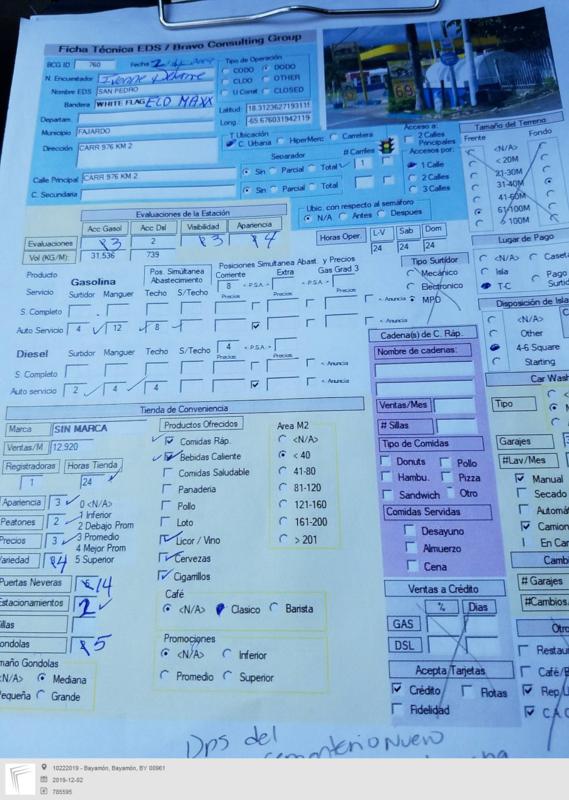 Ficha Técnica EDS / Bravo Consulting Group
BCG ID 760 Fecha
Tipo de Operación
CODO DODO
CLDO OTHER
U Const CLOSED
N. Encuestador Ivonne
Nombre EDS SAN PEDRO
Bandera WHITE FLAG ECO MAXX
Departam.
Latitud 18.3123627193115
Long. -65.676031942119
Municipio FAJARDO
Dirección CARR 976 KM 2
T. Ubicación
C. Urbana HiperMerc Carretera
Separador
Sin Parcial Total
# Carriles
1
Acceso a:
2 Calles
Principales
Accesos por:
1 Calle
2 Calles
3 Calles
Calle Principal CARR 976 KM 2
C. Secundaria
Sin Parcial Total
Tamaño del Terreno
Frente Fondo
<N/A>
< 20M
21-30M
31-40M
41-60M
61-100M
> 100M
Ubic. con respecto al semáforo
N/A Antes Despues
Evaluaciones de la Estación
Acc Gasol Acc Dsl Visibilidad Apariencia
Evaluaciones 3 2 3 4
Vol (KG/M): 31.536 739
Horas Oper. L-V Sab Dom
24 24 24
Lugar de Pago
<N/A>
Isla
T-C
Pago
Tipo Surtidor
Mecánico
Electronico
MPD
Producto Gasolina
Pos. Simultánea Abastecimiento
Posiciones Simultanea Abast. y Precios
Corriente Extra Gas Grad 3
8 <-P.S.A.->
Servicio Surtidor Manguer Techo S/Techo Precios
S. Completo <- Anuncia
Auto Servicio 4 12 8 <- Anuncia
Diesel Surtidor Manguer Techo S/Techo 4 <-P.S.A.->
Precios
S. Completo <- Anuncia
Auto servicio 2 4 4 <- Anuncia
Disposición de Isla
<N/A>
Other
4-6 Square
Starting
Cadena(s) de C. Ráp.
Nombre de cadenas:
Ventas/Mes
# Sillas
Tipo de Comidas
Donuts Pollo
Hambu. Pizza
Sandwich Otro
Comidas Servidas
Desayuno
Almuerzo
Cena
Car Wash
Tipo
Garajes
#Lav/Mes
Manual
Secado
Automá
Camion
En Car
Cambi
# Garajes
#Cambios
Tienda de Conveniencia
Marca SIN MARCA
Ventas/M 12,920
Registradoras Horas Tienda
1 24
Apariencia 3
Peatones 2
Precios 3
Variedad 4
0 <N/A>
1 Inferior
2 Debajo Prom
3 Promedio
4 Mejor Prom
5 Superior
Puertas Neveras 14
Estacionamientos 2
Sillas
Gondolas 5
Tamaño Gondolas
<N/A> Mediana
Pequeña Grande
Productos Ofrecidos
Comidas Ráp.
Bebidas Caliente
Comidas Saludable
Panaderia
Pollo
Loto
Licor / Vino
Cervezas
Cigarrillos
Area M2
<N/A>
< 40
41-80
81-120
121-160
161-200
> 201
Café
<N/A> Clasico Barista
Promociones
<N/A> Inferior
Promedio Superior
Ventas a Crédito
% Dias
GAS
DSL
Acepta Tarjetas
Crédito Flotas
Fidelidad
Otro
Restau
Café/B
Rep
Dps del
cementerio Nuevo
10222019 - Bayamón, Bayamón, BY 00961
2019-12-02
785595